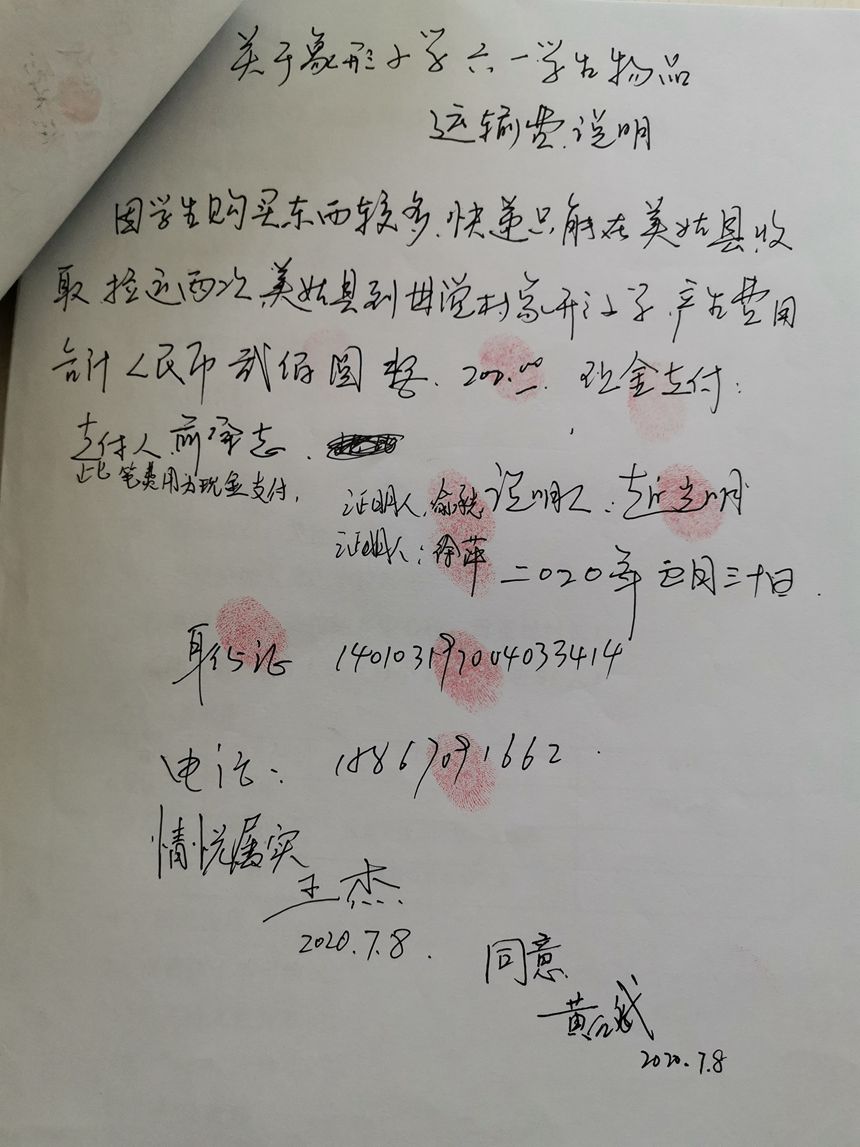 关于象形小学六一学生物品
运输费说明
因学生购买东西较多、快递只能在美姑县收
取 捡运两次、美姑县到 村象形小学、产生费用
合计人民币 贰佰圆整、200.00 现金支付:
支付人
此笔费用为现金支付,
证明人 说明人:
证明人:徐萍
二〇二〇年五月三十日.
身份证 140103197004033414
电话: 18867091662
情况属实
王杰
2020.7.8.
同意
黄
2020.7.8